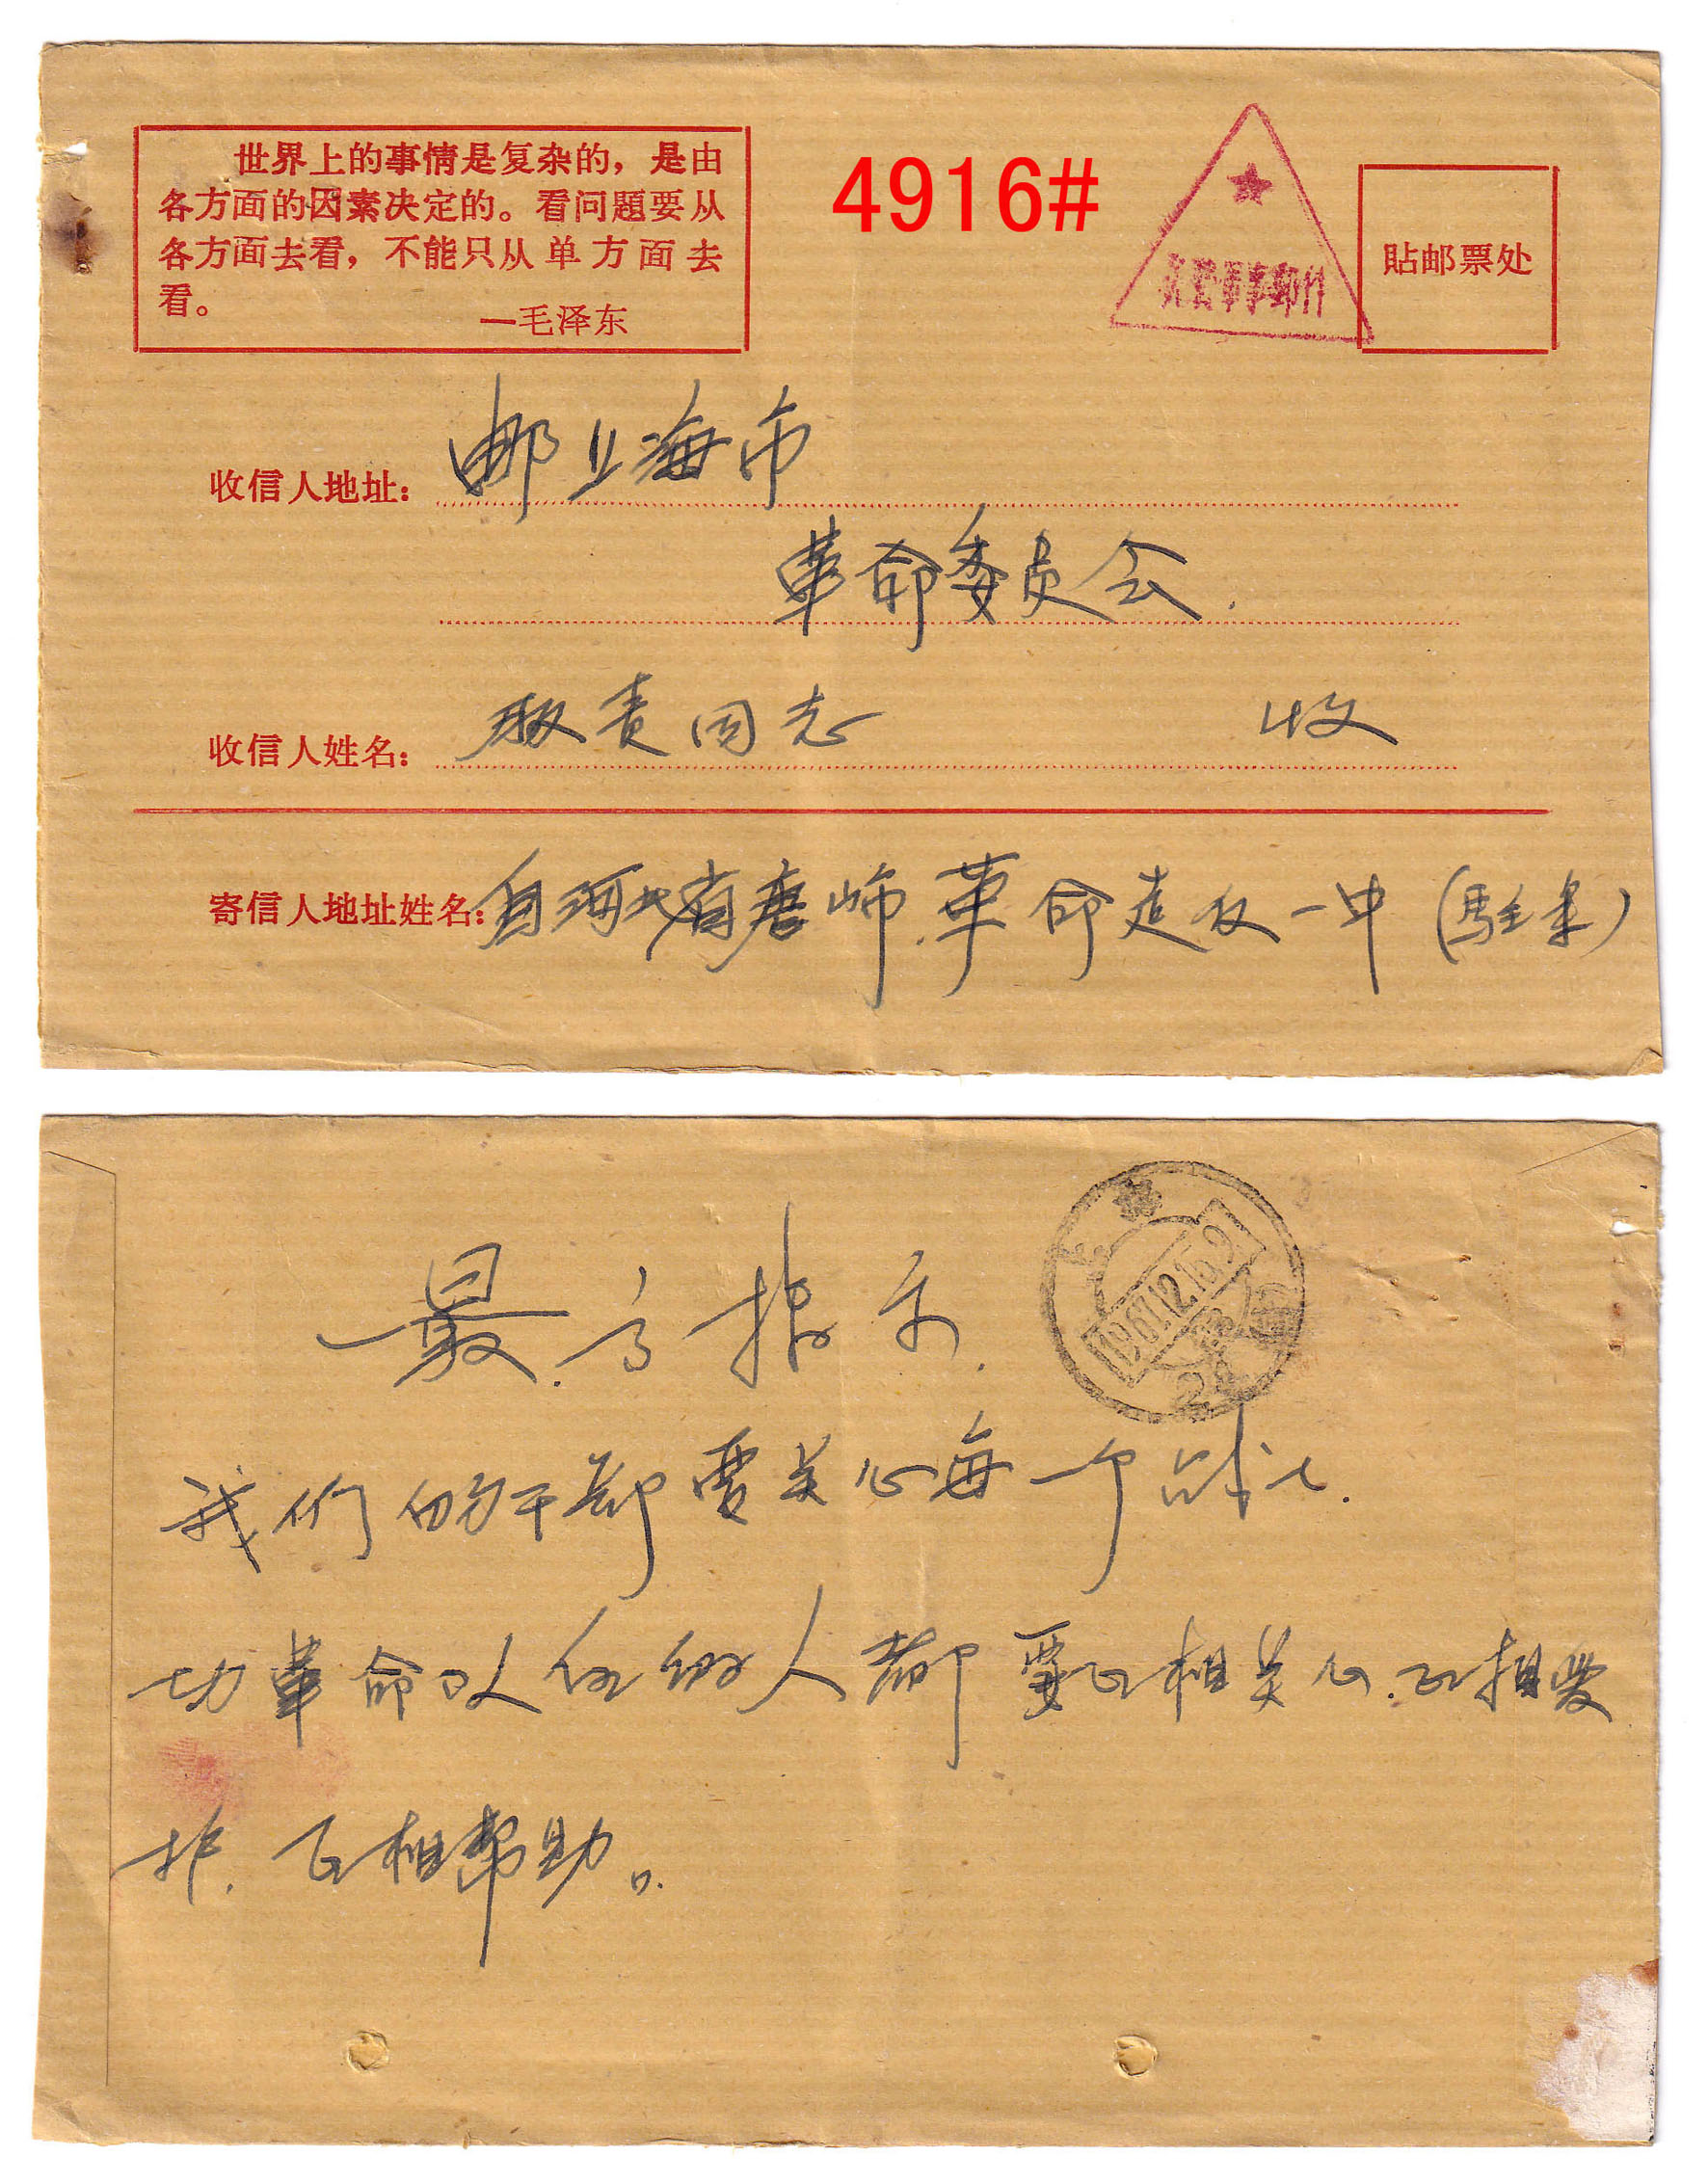 世界上的事情是复杂的，是由
各方面的因素决定的。看问題要从
各方面去看，不能只从单方面去
看。
—毛泽东
4916#
义务军事邮件
貼邮票处
收信人地址：邮上海市
革命委员会.
收信人姓名：同志 收
寄信人地址姓名：自河北省唐山市革命造反一中（駐军）
最高指示.
上海
1967.12.15.9
2
我们的干部要关心每一个战士.
切革命队伍的人都要互相关心.互相爱
护.互相帮助。